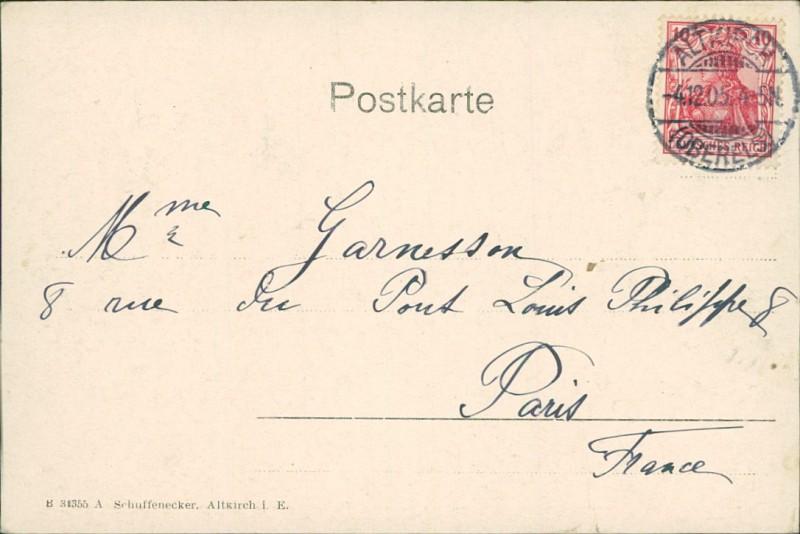 10 10
ALTKIRCH
-4.12.05. 4-5N.
(OBERELS.)
Postkarte
Mme
Garnesson
8 rue du Pont Louis Philippe 8
Paris
France
B 31355 A Schuffenecker, Altkirch i. E.